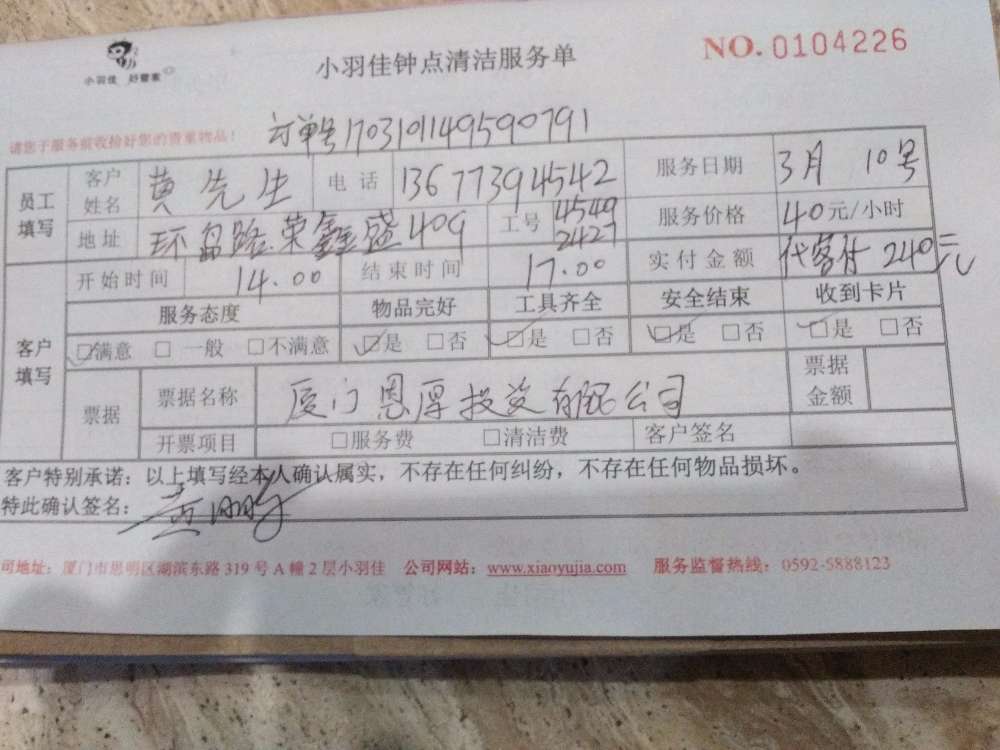 小羽佳 好管家
小羽佳钟点清洁服务单
NO. 0104226
请您于服务前收拾好您的贵重物品!
订单号1703101149590791
员工填写 客户姓名 黄先生 电话 13677394542 服务日期 3月10号
地址 环岛路.荣鑫盛409 工号 4549 2427 服务价格 40元/小时
开始时间 14.00 结束时间 17.00 实付金额 代客付 240元
客户填写 服务态度 物品完好 工具齐全 安全结束 收到卡片
☑满意 □一般 □不满意 ☑是 □否 ☑是 □否 ☑是 □否 ☑是 □否
票据 票据名称 厦门恩厚投资有限公司 票据金额
开票项目 □服务费 □清洁费 客户签名
客户特别承诺:以上填写经本人确认属实,不存在任何纠纷,不存在任何物品损坏。
特此确认签名:
司地址:厦门市思明区湖滨东路319号A幢2层小羽佳 公司网站:www.xiaoyujia.com 服务监督热线:0592-5888123